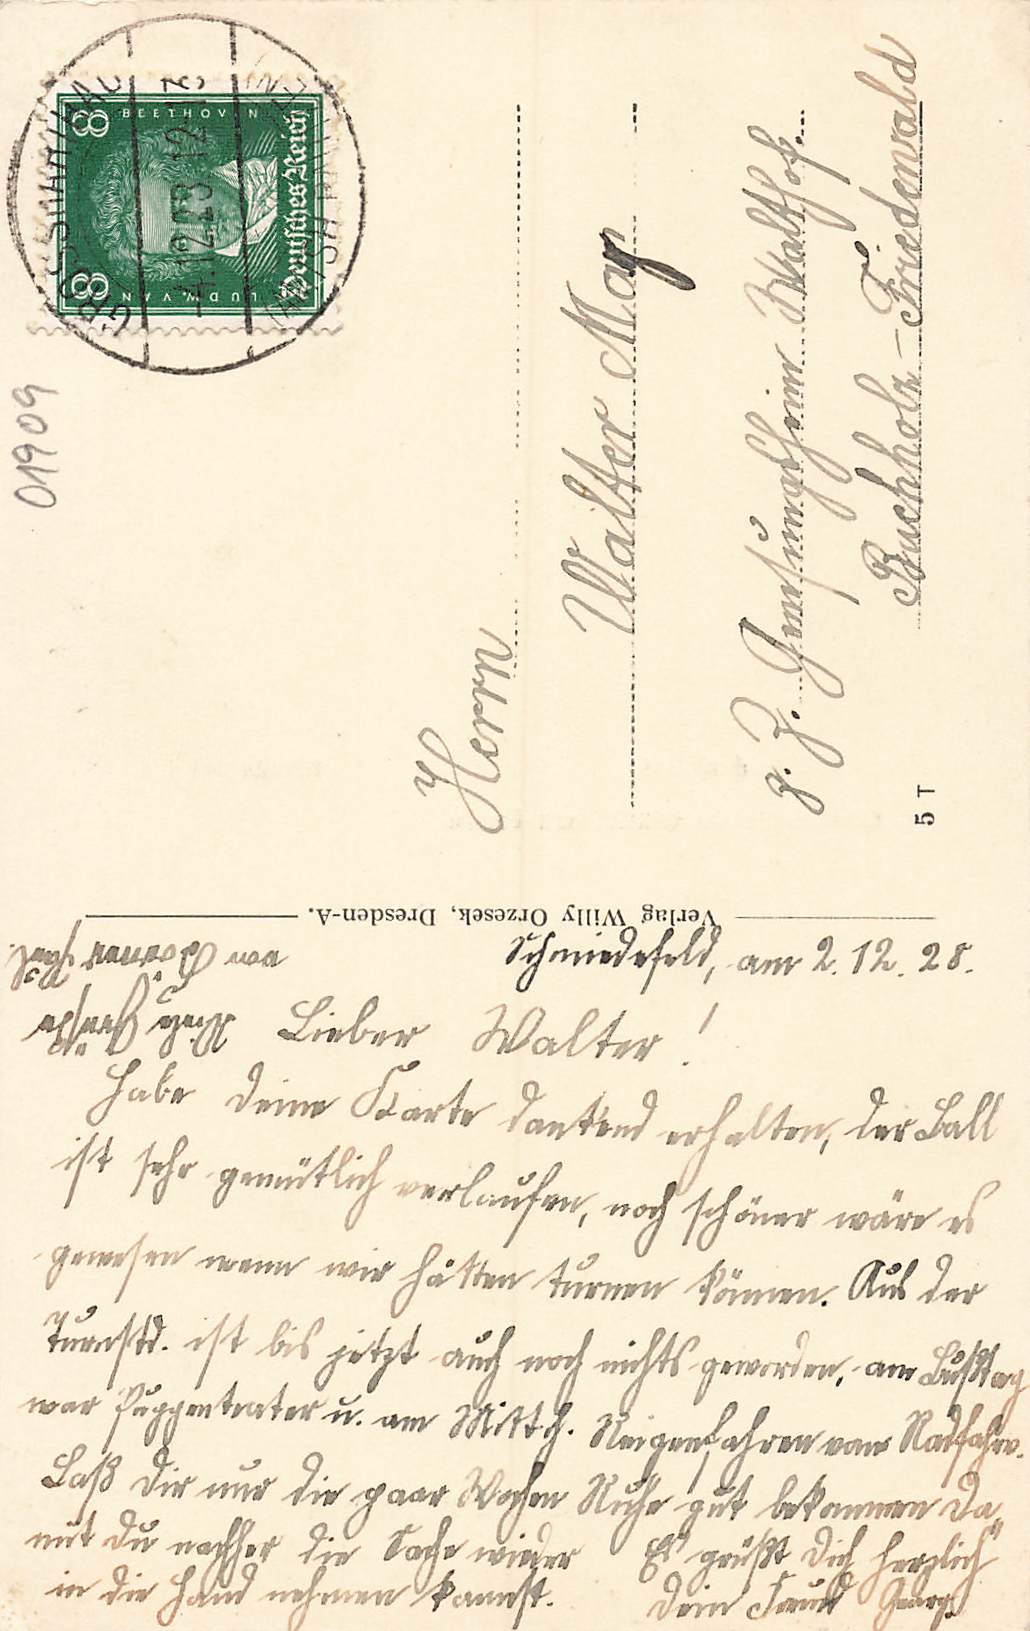 Schmiedefeld, am 2. 12. 28.
Lieber Walter!
habe deine Karte dankend erhalten, der Ball
ist sehr gemütlich verlaufen, noch schöner wäre es
gewesen wenn wir hätten turnen können. Aus der
Turnstd. ist bis jetzt auch noch nichts geworden, am Bußtag
war Puppenteater u. am Mittch. Reigenfahren vom Radfahrv.
Laß Dir nur die paar Wochen Ruhe gut bekommen da
mit du nachher die Sache wieder
in die Hand nehmen kannst.
Es grüßt Dich herzlich
Dein Freund Georg.
Verlag Willy Orzesek, Dresden-A.
Herrn
Walter May
z. Z. Genesungsheim Waldhof
Buchholz-Friedewald
5 T
01909
8 LUDW. VAN BEETHOVEN 8
Deutsches Reich
-4.12.28 12-13